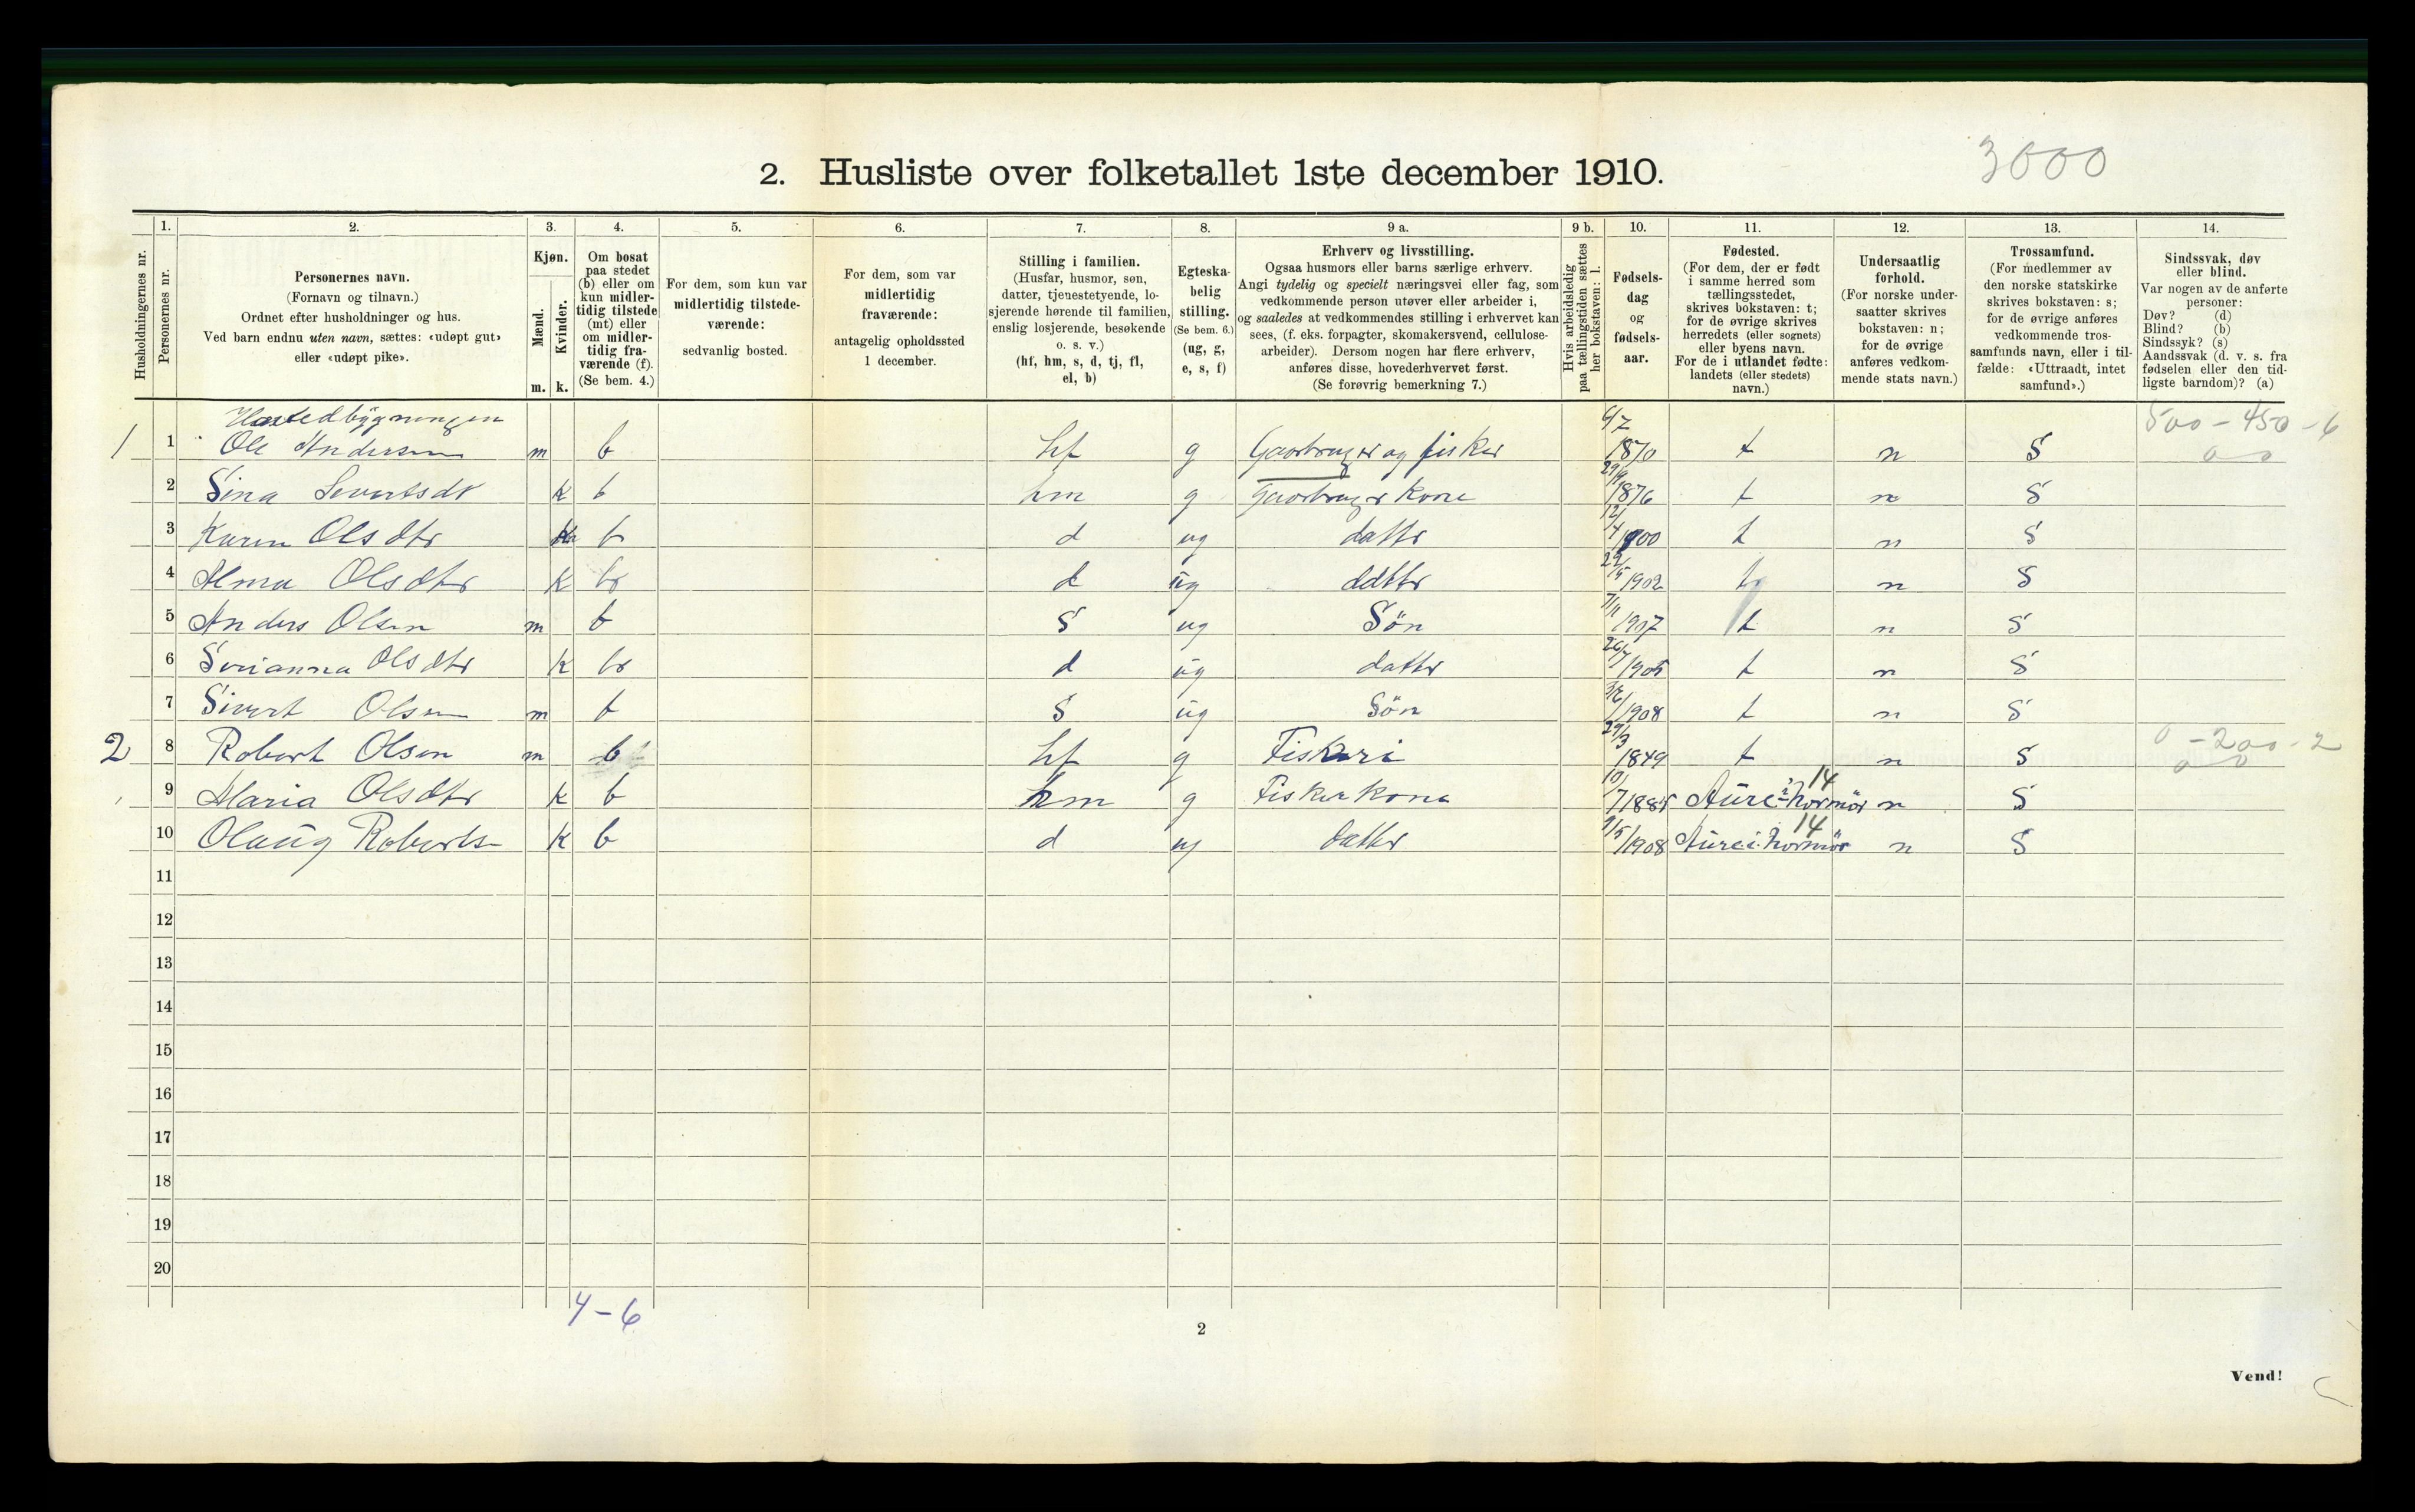 3000
2. Husliste over folketallet 1ste december 1910.
Husholdningernes nr.
1.
Personernes nr.
2.
Personernes navn.
(Fornavn og tilnavn.)
Ordnet efter husholdninger og hus.
Ved barn endnu uten navn, sættes: «udøpt gut»
eller «udøpt pike».
3.
Kjøn.
Mænd.
Kvinder.
m. k.
4.
Om bosat
paa stedet
(b) eller om
kun midler-
tidig tilstede
(mt) eller
om midler-
tidig fra-
værende (f).
(Se bem. 4.)
5.
For dem, som kun var
midlertidig tilstede-
værende:
sedvanlig bosted.
6.
For dem, som var
midlertidig
fraværende:
antagelig opholdssted
1 december.
7.
Stilling i familien.
(Husfar, husmor, søn,
datter, tjenestetyende, lo-
sjerende hørende til familien,
enslig losjerende, besøkende
o. s. v.)
(hf, hm, s, d, tj, fl,
el, b)
8.
Egteska-
belig
stilling.
(Se bem. 6.)
(ug, g,
e, s, f)
9 a.
Erhverv og livsstilling.
Ogsaa husmors eller barns særlige erhverv.
Angi tydelig og specielt næringsvei eller fag, som
vedkommende person utøver eller arbeider i,
og saaledes at vedkommendes stilling i erhvervet kan
sees, (f. eks. forpagter, skomakersvend, cellulose-
arbeider). Dersom nogen har flere erhverv,
anføres disse, hovederhvervet først.
(Se forøvrig bemerkning 7.)
9 b.
Hvis arbeidsledig
paa tællingstiden sættes
her bokstaven: l.
10.
Fødsels-
dag
og
fødsels-
aar.
11.
Fødested.
(For dem, der er født
i samme herred som
tællingsstedet,
skrives bokstaven: t;
for de øvrige skrives
herredets (eller sognets)
eller byens navn.
For de i utlandet fødte:
landets (eller stedets)
navn.)
12.
Undersaatlig
forhold.
(For norske under-
saatter skrives
bokstaven: n;
for de øvrige
anføres vedkom-
mende stats navn.)
13.
Trossamfund.
(For medlemmer av
den norske statskirke
skrives bokstaven: s;
for de øvrige anføres
vedkommende tros-
samfunds navn, eller i til-
fælde: «Uttraadt, intet
samfund».)
14.
Sindssvak, døv
eller blind.
Var nogen av de anførte
personer:
Døv? (d)
Blind? (b)
Sindssyk? (s)
Aandssvak (d. v. s. fra
fødselen eller den tid-
ligste barndom)? (a)
6/7 500 - 450 - 6
1 1 Ole Andersen m b hf g og fisker 1870 t n S
2 Sina k b hm g Kone 1876 t n S
3 Karen Olsdtr b d ug dattr 12/4 1900 t n S
4 Alma Olsdtr k b d ug dattr 1902 t n S
5 Anders Olsen m b S ug Søn 7/11 1907 t n S
6 Olsdtr k b d ug dattr 1905 t n S
7 Sivert Olsen m b S ug Søn 1908 t n S
2 8 Robert Olsen m b hf g Fiskeri 29/3 1849 t n S 0 - 200 - 2
9 Maria Olsdtr k b hm g Fisker kona Aure i Normör 14 n S
10 Olaug Roberts k b d ug dattr 9/5 1908 Aure i Normör 14 n S
11
12
13
14
15
16
17
18
19
20
4 - 6
2
Vend!